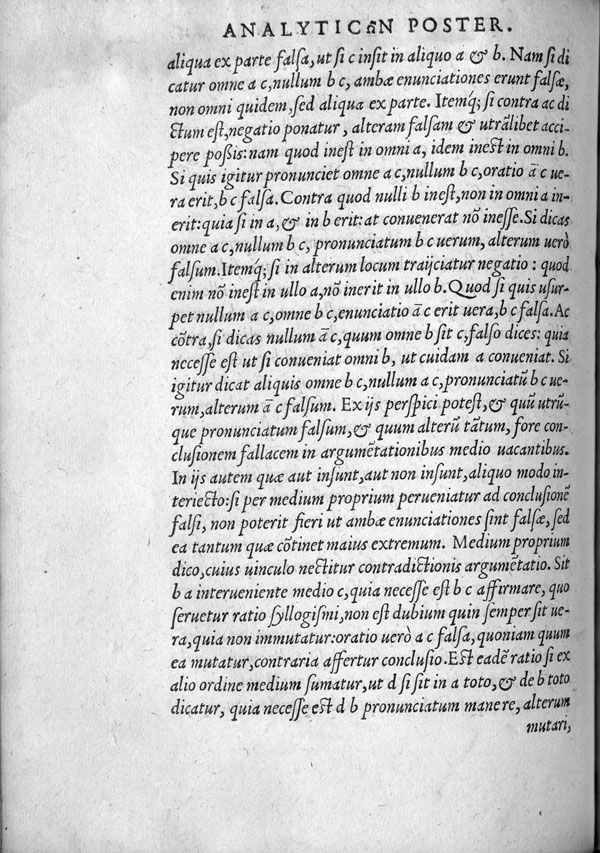 ANALYTICωN POSTER.
aliqua ex parte falſa, ut ſi c inſit in aliquo a & b. Nam ſi di
catur omne a c, nullum b c, ambæ enunciationes erunt falſæ,
non omni quidem, ſed aliqua ex parte. Itemq; ſi contra ac di
ctum eſt, negatio ponatur, alteram falſam & utrãlibet acci-
pere poßis: nam quod ineſt in omni a, idem ineſt in omni b.
Si quis igitur pronunciet omne a c, nullum b c, oratio ā c ue-
ra erit, b c falſa. Contra quod nulli b ineſt, non in omni a in-
erit: quia ſi in a, & in b erit: at conuenerat nõ ineſſe. Si dicas
omne a c, nullum b c, pronunciatum b c uerum, alterum uerò
falſum. Itemq; ſi in alterum locum traijciatur negatio: quod
enim nõ ineſt in ullo a, nõ inerit in ullo b. Quod ſi quis uſur-
pet nullum a c, omne b c, enunciatio ā c erit uera, b c falſa. Ac
cõtra, ſi dicas nullum ā c, quum omne b ſit c, falſo dices: quia
neceſſe eſt ut ſi conueniat omni b, ut cuidam a conueniat. Si
igitur dicat aliquis omne b c, nullum a c, pronunciatũ b c ue-
rum, alterum ā c falſum. Ex ijs perſpici poteſt, & quũ utrũ-
que pronunciatum falſum, & quum alterũ tãtum, fore con-
cluſionem fallacem in argumẽtationibus medio uacantibus.
In ijs autem quæ aut inſunt, aut non inſunt, aliquo modo in-
teriecto: ſi per medium proprium perueniatur ad concluſionẽ
falſi, non poterit fieri ut ambæ enunciationes ſint falſæ, ſed
ea tantum quæ cõtinet maius extremum. Medium proprium
dico, cuius uinculo nectitur contradictionis argumẽtatio. Sit
b a interueniente medio c, quia neceſſe eſt b c affirmare, quo
ſeruetur ratio ſyllogiſmi, non eſt dubium quin ſemper ſit ue-
ra, quia non immutatur: oratio uerò a c falſa, quoniam quum
ea mutatur, contraria affertur concluſio. Eſt eadẽ ratio ſi ex
alio ordine medium ſumatur, ut d ſi ſit in a toto, & de b toto
dicatur, quia neceſſe eſt d b pronunciatum manere, alterum
mutari,